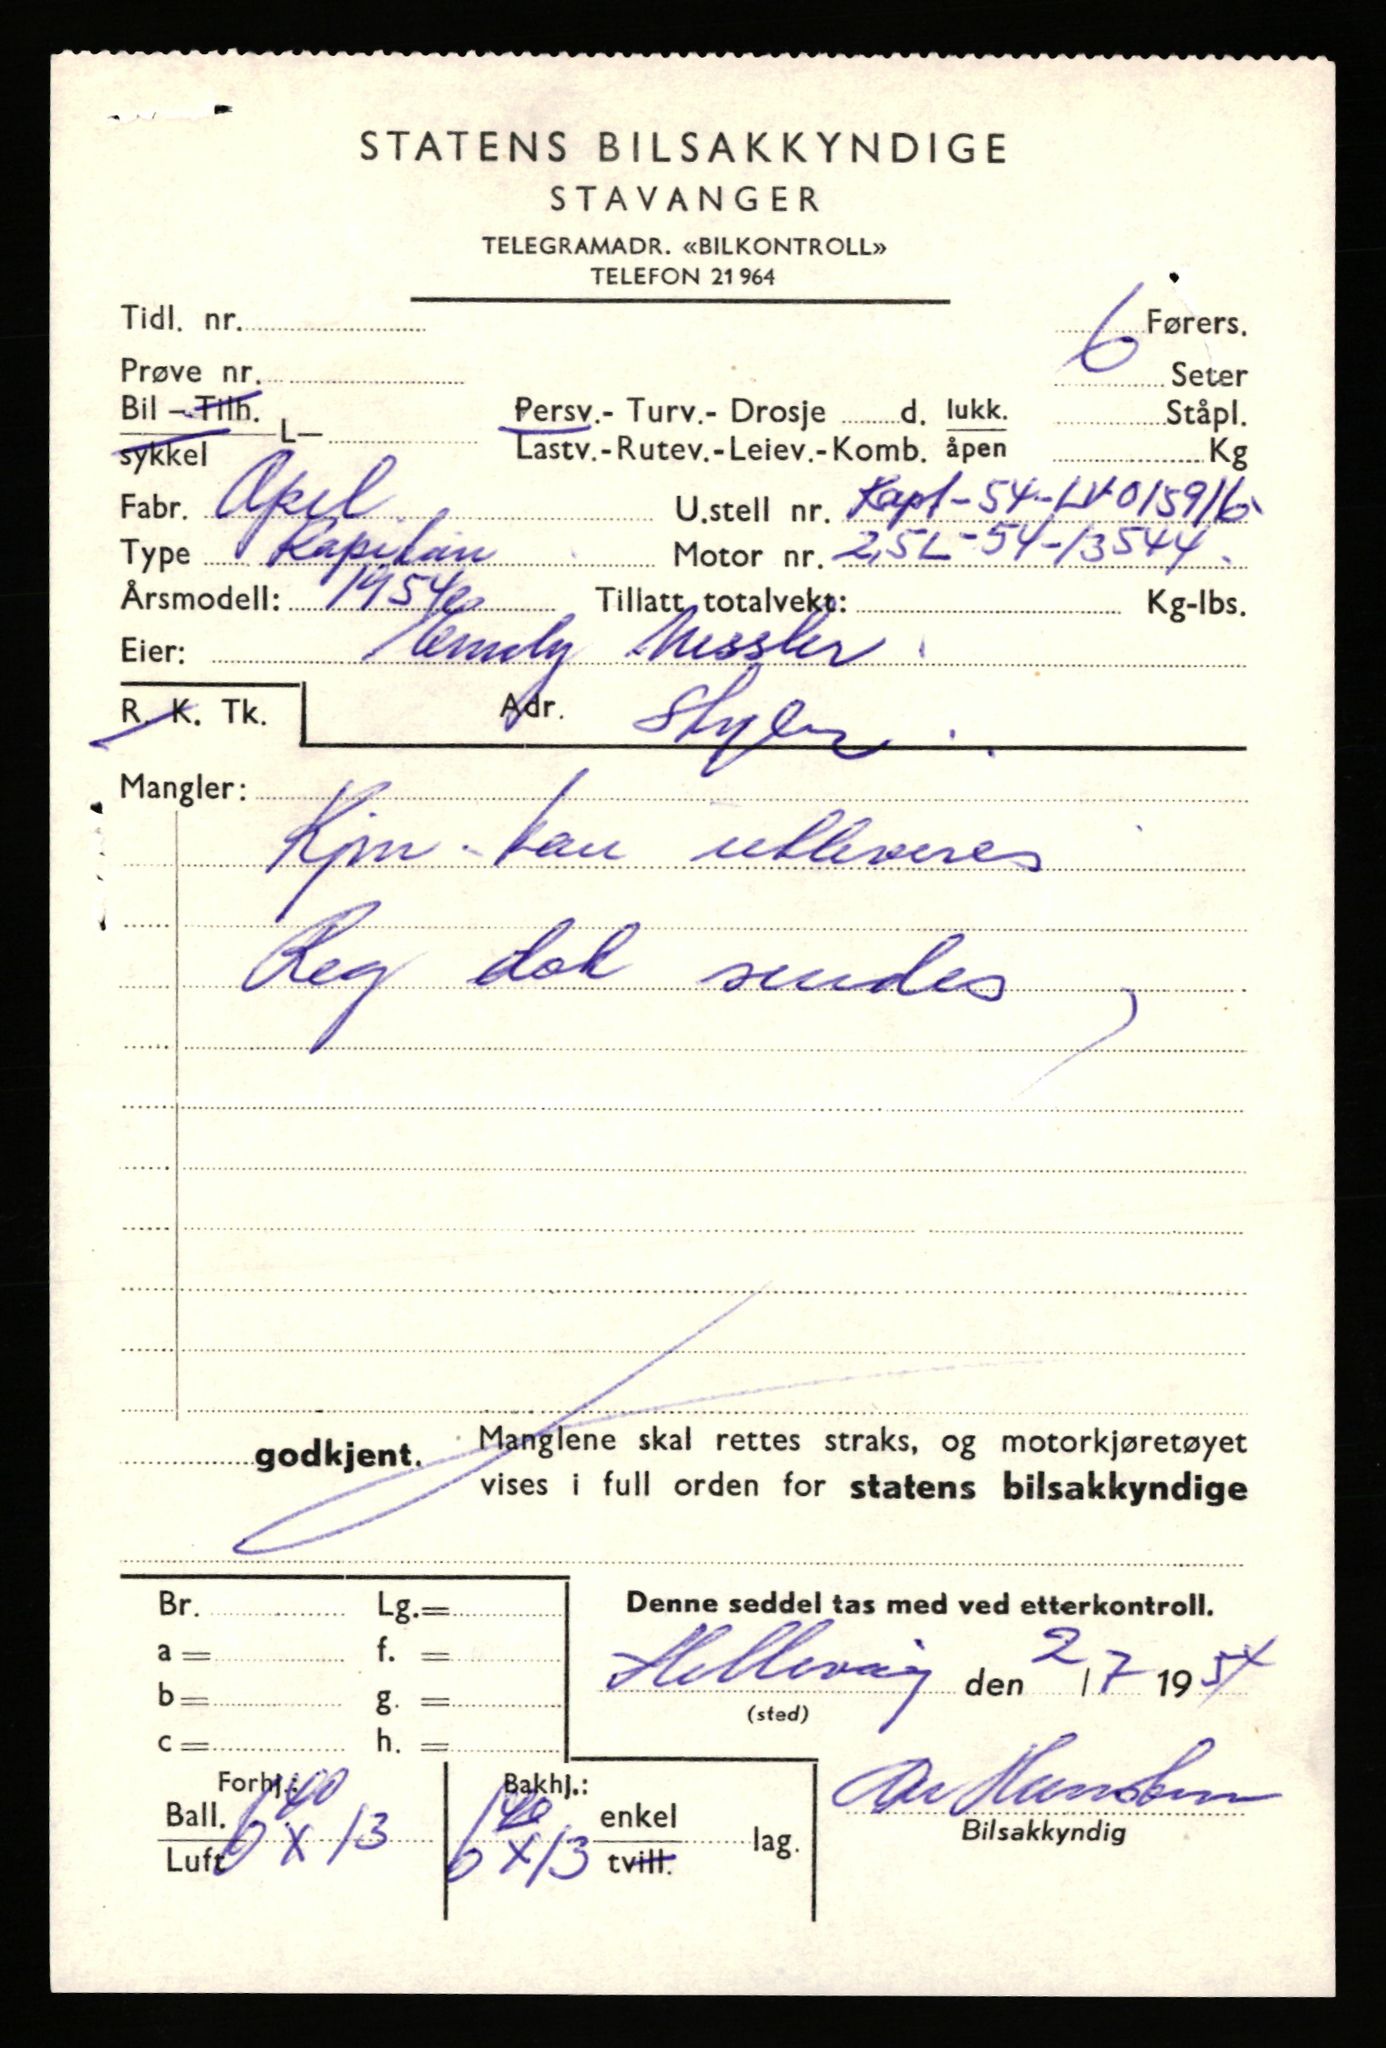 STATENS BILSAKKYNDIGE
STAVANGER
TELEGRAMADR. «BILKONTROLL»
TELEFON 21964
Tidl. nr. 6 Førers.
Prøve nr. Seter
Bil – Tilh. Persv.- Turv.- Drosje d. lukk. Ståpl.
L—
sykkel Lastv.-Rutev.-Leiev.-Komb. åpen Kg
Fabr. Opel U.stell nr. Kapt-54-LV015916
Type Kapitän Motor nr. 2,5L-54-13544
Årsmodell: 1954 Tillatt totalvekt: Kg-lbs.
Eier: Nessler
R. K. Tk. Adr.
Mangler:
Kjm. kan utleveres
Reg dok sendes
godkjent. Manglene skal rettes straks, og motorkjøretøyet
vises i full orden for statens bilsakkyndige
Br. Lg.= Denne seddel tas med ved etterkontroll.
a = f. =
Hellevåg den 2/7 1954
b = g. =
(sted)
c = h. =
Forhj.: Bakhj.:
Ball. 640 x 13 640 x 13 enkel lag.
Luft tvill.
Bilsakkyndig